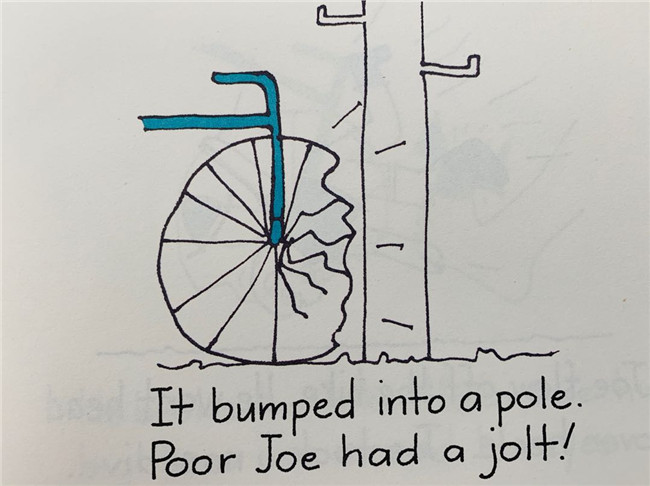 It bumped into a pole.
Poor Joe had a jolt!